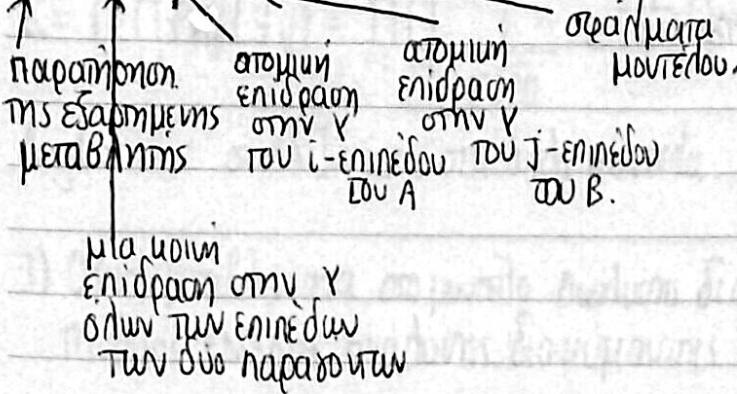 παρατήρηση
της εξαρτημένης
μεταβλητής
ατομική
επίδραση
στην Υ
του i-επιπέδου
του Α
ατομική
επίδραση
στην Υ
του j-επιπέδου
του Β.
σφάλματα
μοντέλου.
μία κοινή
επίδραση στην Υ
όλων των επιπέδων
των δύο παραγόντων